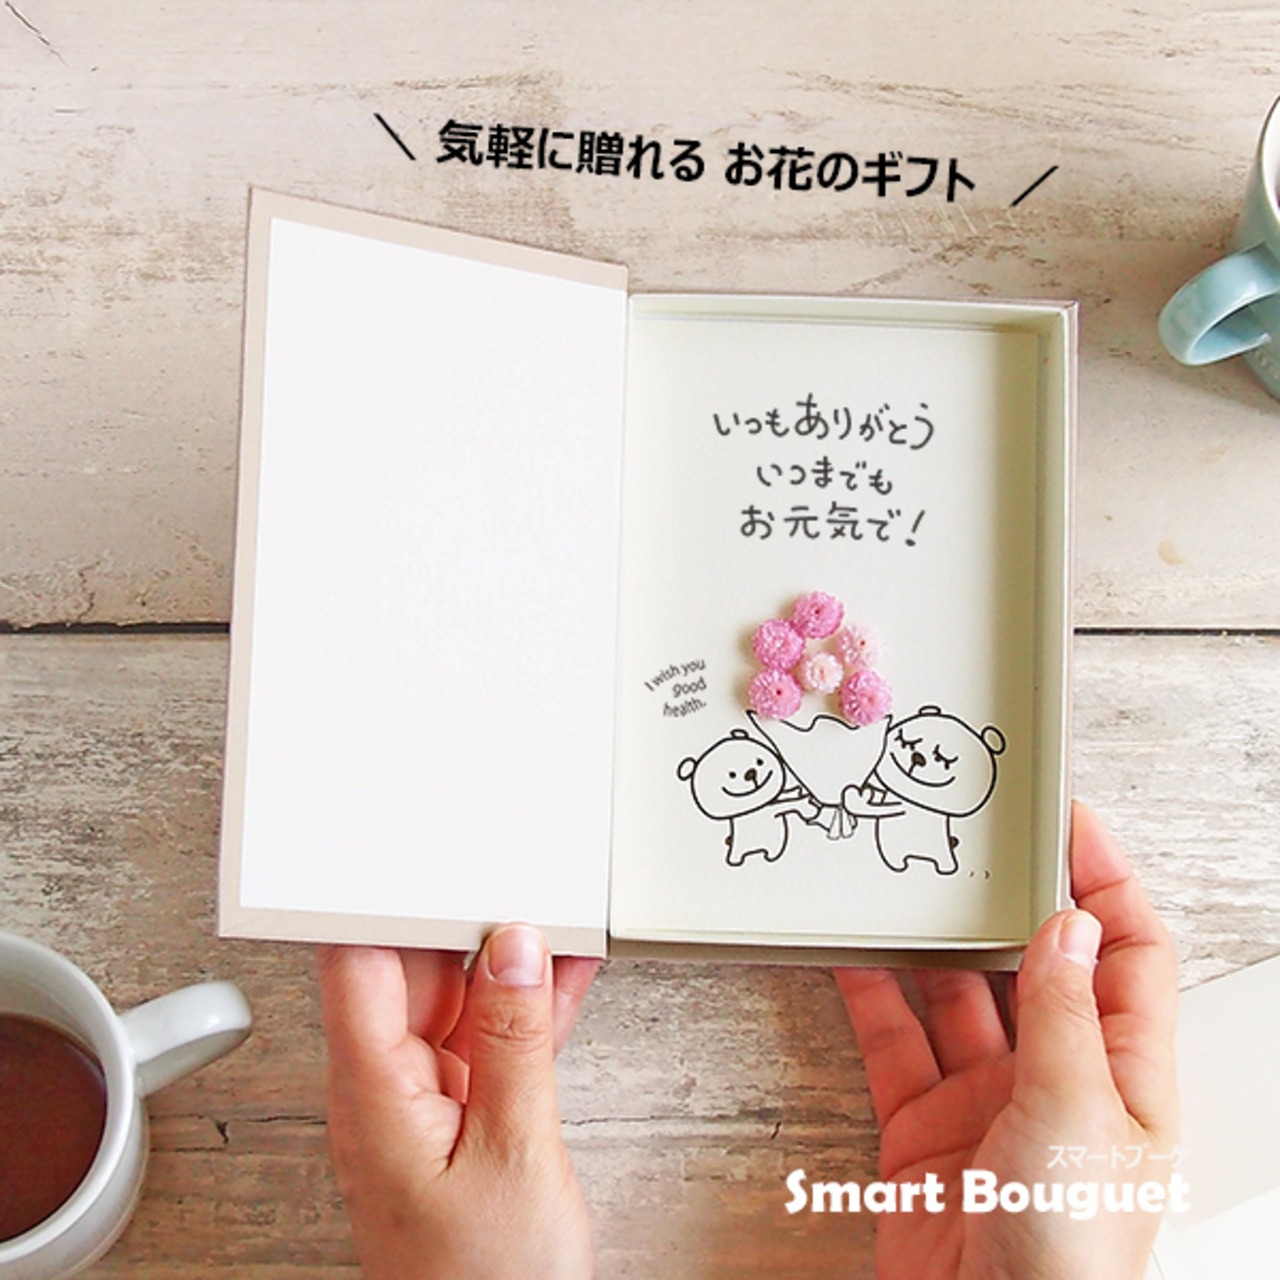 ＼ 気軽に贈れる お花のギフト ／
いつもありがとう
いつまでも
お元気で!
I wish you
good
health.
スマートブーケ
Smart Bouguet